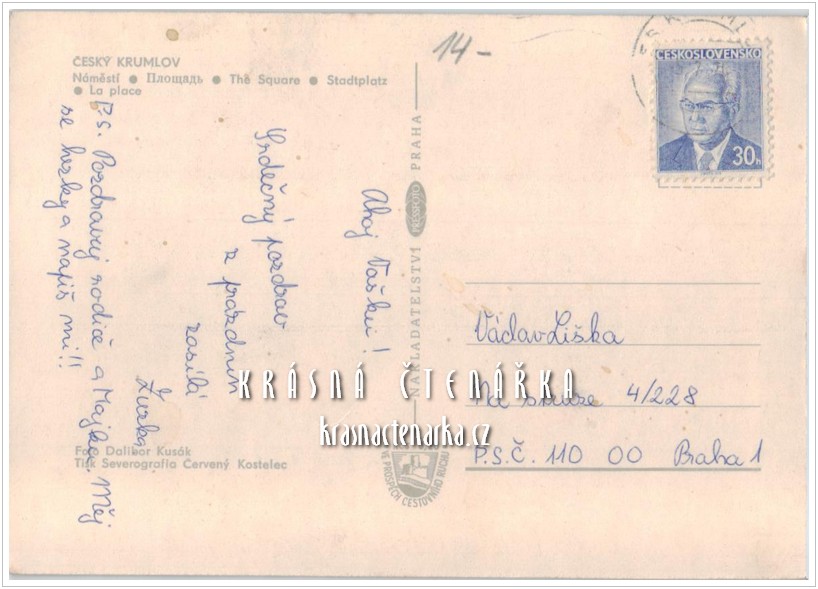 ČESKÝ KRUMLOV
Náměstí ● Площадь ● The Square ● Stadtplatz
● La place
14-
ČESKOSLOVENSKO
30h
Ahoj Vašku!
Srdečný pozdrav
z prázdnin
zasílá
Zuzka
P.s. Pozdravuj rodiče a Majku. Měj
se hezky a napiš mi!!
NAKLADATELSTVÍ PRESSFOTO PRAHA
Václav Liška
Na struze 4/228
P.S.Č. 110 00 Praha 1
KRÁSNÁ ČTENÁŘKA
krasnactenarka.cz
Foto Dalibor Kusák
Tisk Severografia Červený Kostelec
VE PROSPĚCH CESTOVNÍHO RUCHU